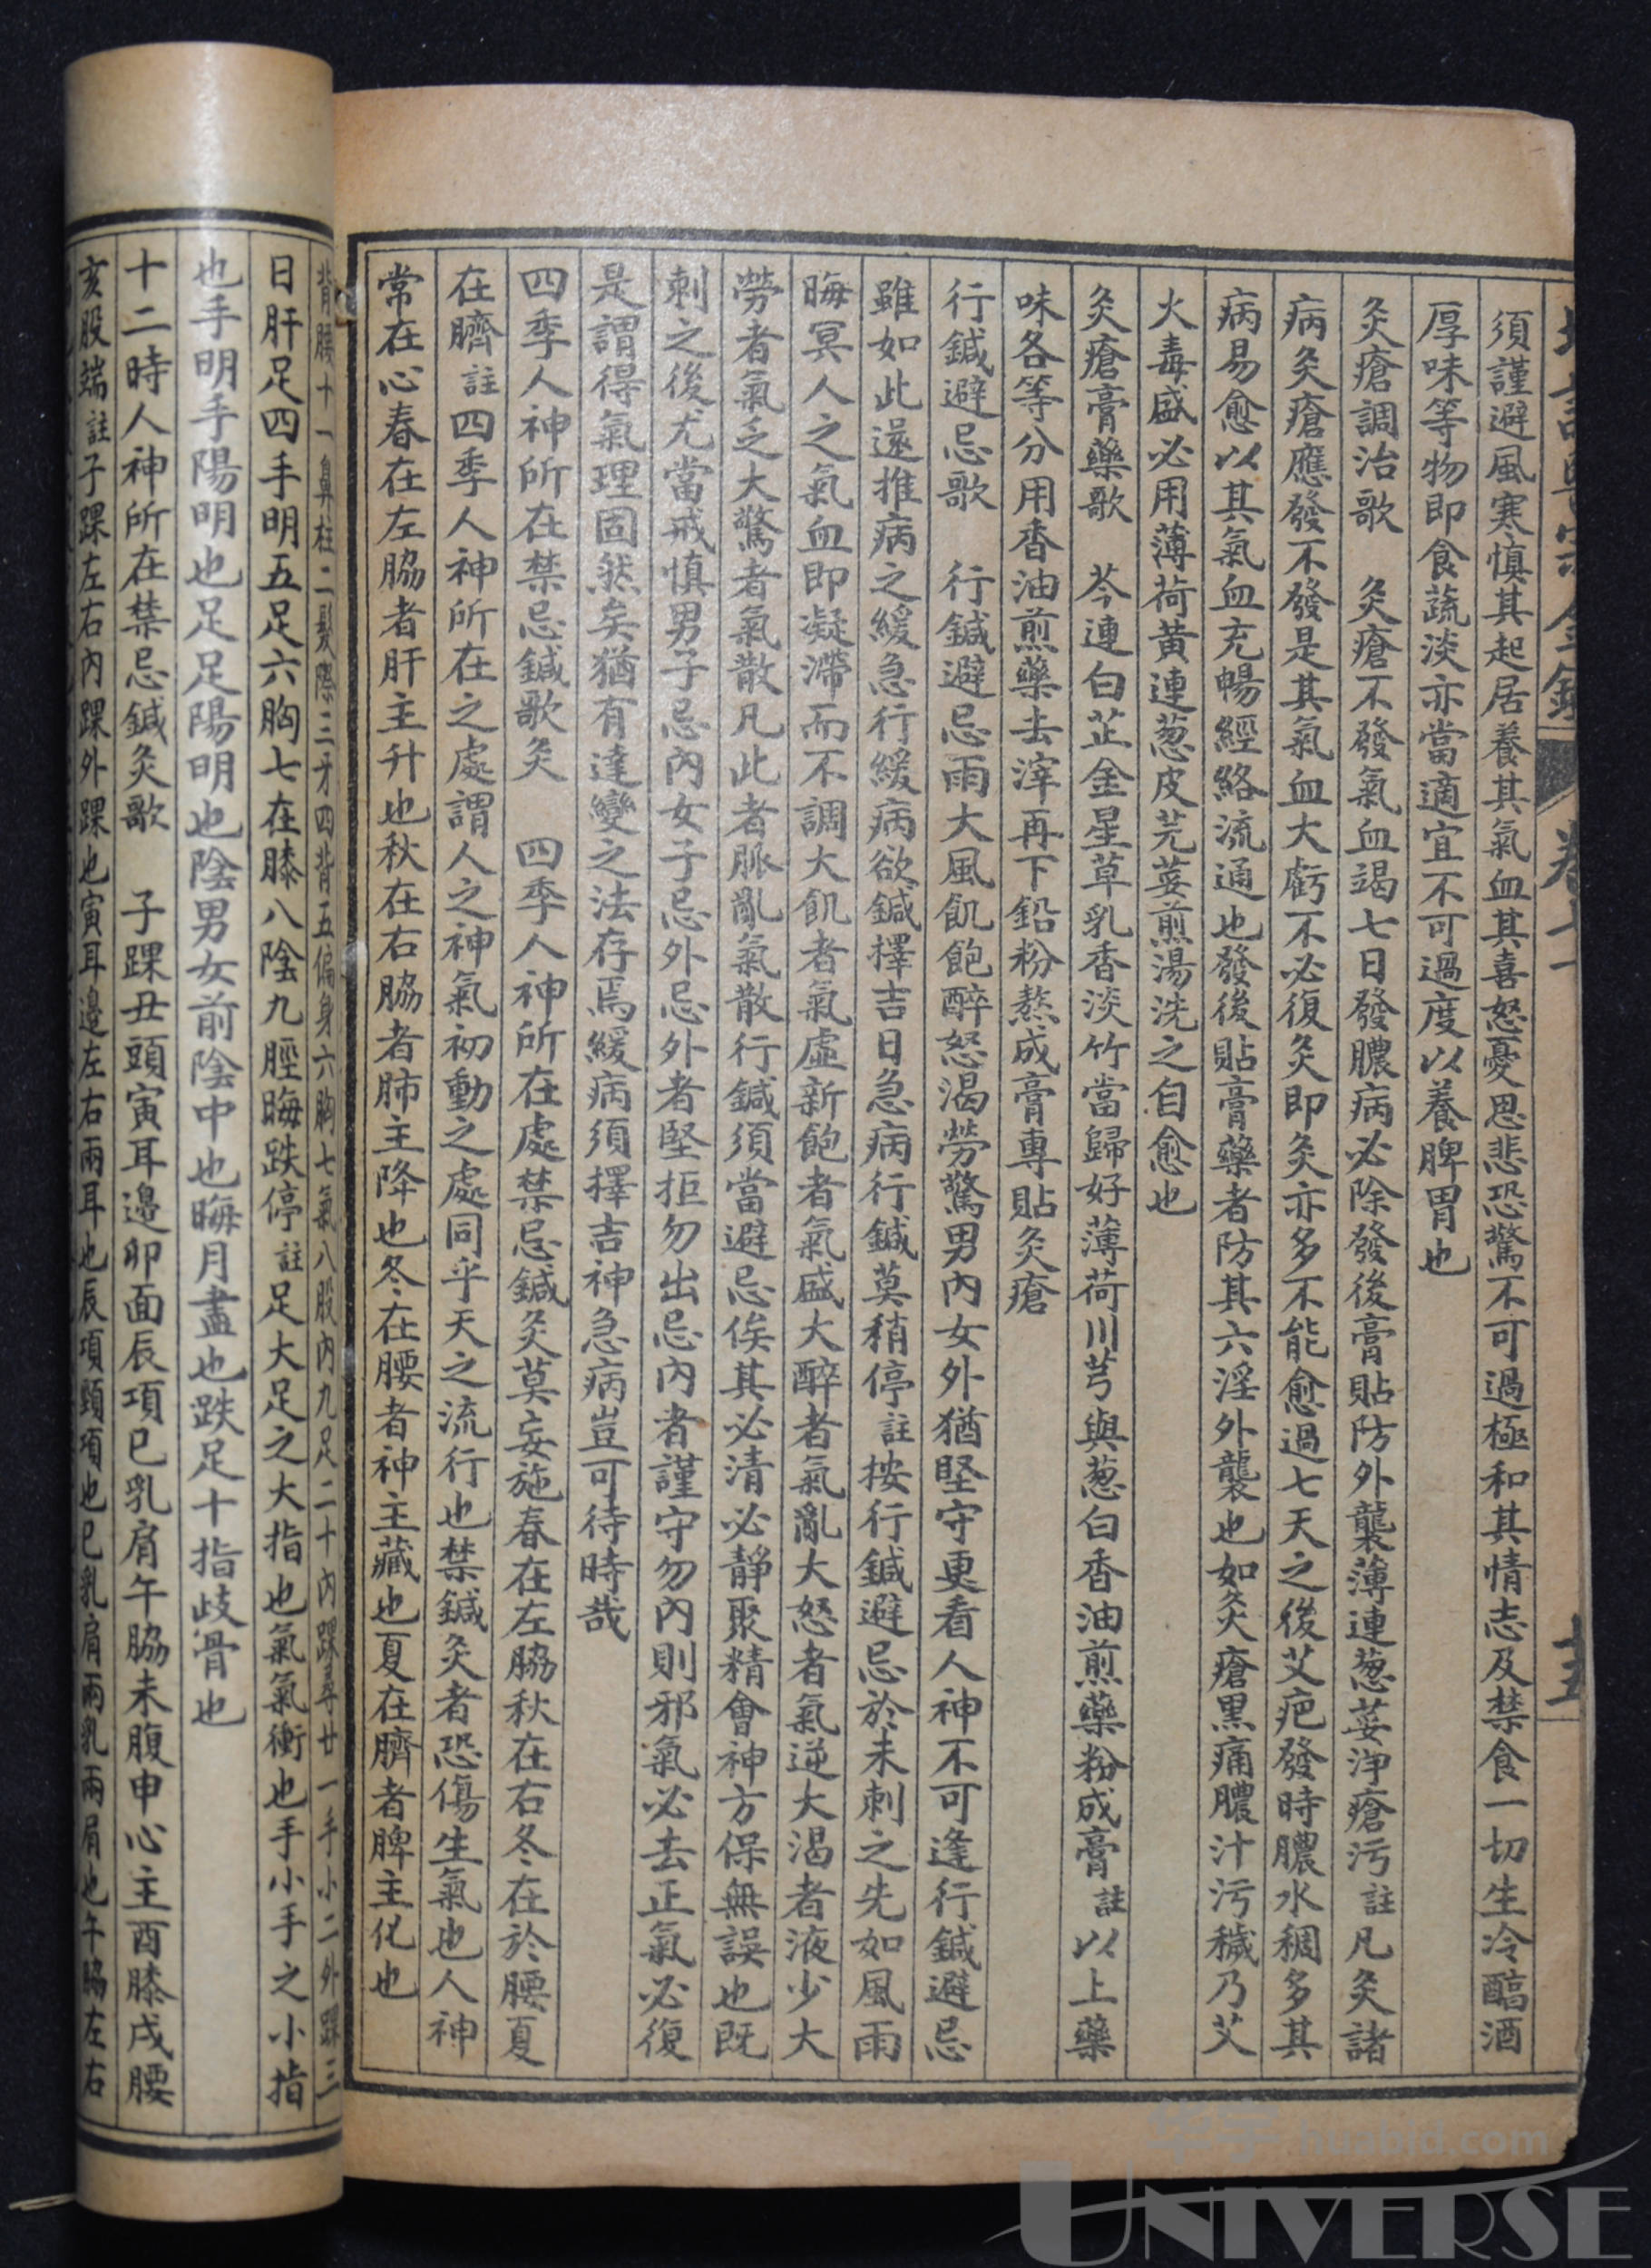 須謹避風寒慎其起居養其氣血其喜怒憂思悲恐驚不可過極和其情志及禁食一切生冷醕酒
厚味等物即食蔬淡亦當適宜不可過度以養脾胃也
灸瘡調治歌　灸瘡不發氣血竭七日發膿病必除發後膏貼防外襲薄連葱荽淨瘡污註凡灸諸
病灸瘡應發不發是其氣血大虧不必復灸即灸亦多不能愈過七天之後艾疤發時膿水稠多其
病易愈以其氣血充暢經絡流通也發後貼膏藥者防其六淫外襲也如灸瘡黑痛膿汁污穢乃艾
火毒盛必用薄荷黄連葱皮芫荽煎湯洗之自愈也
灸瘡膏藥歌　芩連白芷金星草乳香淡竹當歸好薄荷川芎與葱白香油煎藥粉成膏註以上藥
味各等分用香油煎藥去滓再下鉛粉熬成膏專貼灸瘡
行鍼避忌歌　行鍼避忌雨大風飢飽醉怒渴勞驚男內女外猶堅守更看人神不可逢行鍼避忌
雖如此還推病之緩急行緩病欲鍼擇吉日急病行鍼莫稍停註按行鍼避忌於未刺之先如風雨
晦冥人之氣血即凝滯而不調大飢者氣虛新飽者氣盛大醉者氣亂大怒者氣逆大渴者液少大
勞者氣乏大驚者氣散凡此者脈亂氣散行鍼須當避忌俟其必清必靜聚精會神方保無誤也既
刺之後尤當戒慎男子忌內女子忌外忌外者堅拒勿出忌內者謹守勿內則邪氣必去正氣必復
是謂得氣理固然矣猶有達變之法存焉緩病須擇吉神急病豈可待時哉
四季人神所在禁忌鍼歌灸　四季人神所在處禁忌鍼灸莫妄施春在左脇秋在右冬在於腰夏
在臍註四季人神所在之處謂人之神氣初動之處同乎天之流行也禁鍼灸者恐傷生氣也人神
常在心春在左脇者肝主升也秋在右脇者肺主降也冬在腰者神主藏也夏在臍者脾主化也
背腰十一鼻柱二髮際三牙四背五偏身六胸七氣八股內九足二十內踝尋廿一手小二外踝三
日肝足四手明五足六胸七在膝八陰九脛晦跌停註足大足之大指也氣氣衝也手小手之小指
也手明手陽明也足足陽明也陰男女前陰中也晦月盡也跌足十指歧骨也
十二時人神所在禁忌鍼灸歌　子踝丑頭寅耳邊卯面辰項巳乳肩午脇未腹申心主酉膝戌腰
亥股端註子踝左右內踝外踝也寅耳邊左右兩耳也辰項頸項也巳乳肩兩乳兩肩也午脇左右
卷
十五
华宇 huabid.com
UNIVERSE